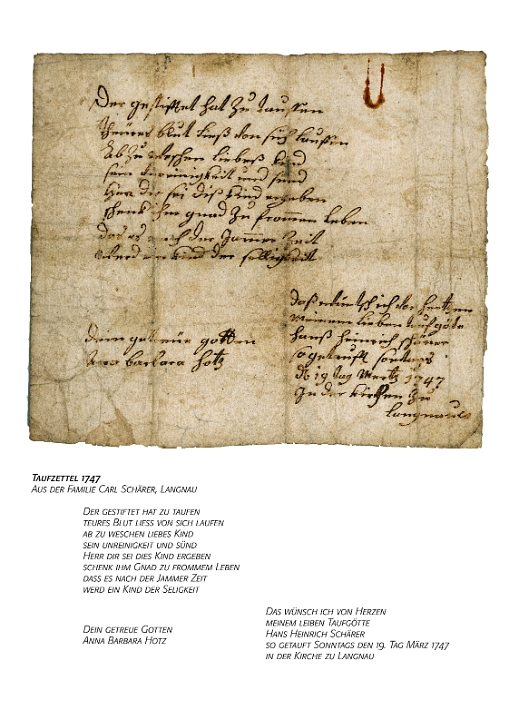 Der gestifftet hat Zu tauffen
theures blut ließ von sich lauffen
Ab Zu weschen liebes kind
sein unreinigkeit und sünd
Herr dir sei diß kind ergeben
schenk ihm gnad Zu frommem leben
das es nach der Jammer Zeit
werd ein kind der selligkeit
dein getreüe gotten
Anna barbara hotz
daß wünsch ich von hertzen
meinem lieben taufgöte
hanß heinrich schärer
so getauft sontags
19 tag Mertz 1747
In der kirchen Zu
langnau
Taufzettel 1747
Aus der Familie Carl Schärer, Langnau
Der gestiftet hat zu taufen
teures Blut liess von sich laufen
ab zu weschen liebes Kind
sein unreinigkeit und sünd
Herr dir sei dies Kind ergeben
schenk ihm Gnad zu frommem Leben
dass es nach der Jammer Zeit
werd ein Kind der Seligkeit
Dein getreue Gotten
Anna Barbara Hotz
Das wünsch ich von Herzen
meinem leiben Taufgötte
Hans Heinrich Schärer
so getauft Sonntags den 19. Tag März 1747
in der Kirche zu Langnau